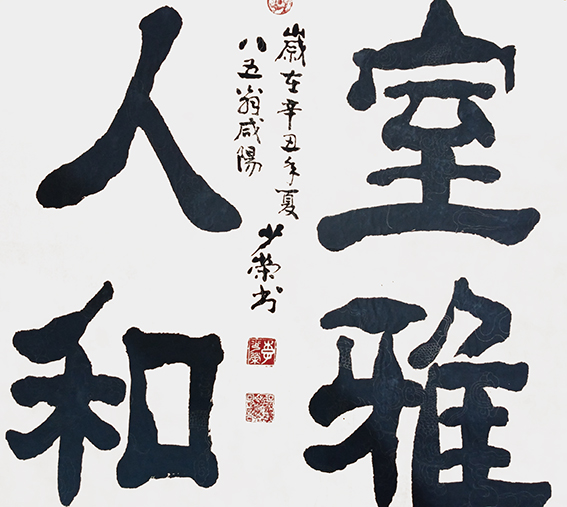 室雅
人和
歲在辛丑年夏
八五翁咸陽
少榮书